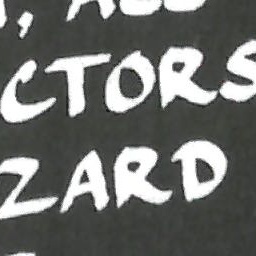 CTORS
ZARD